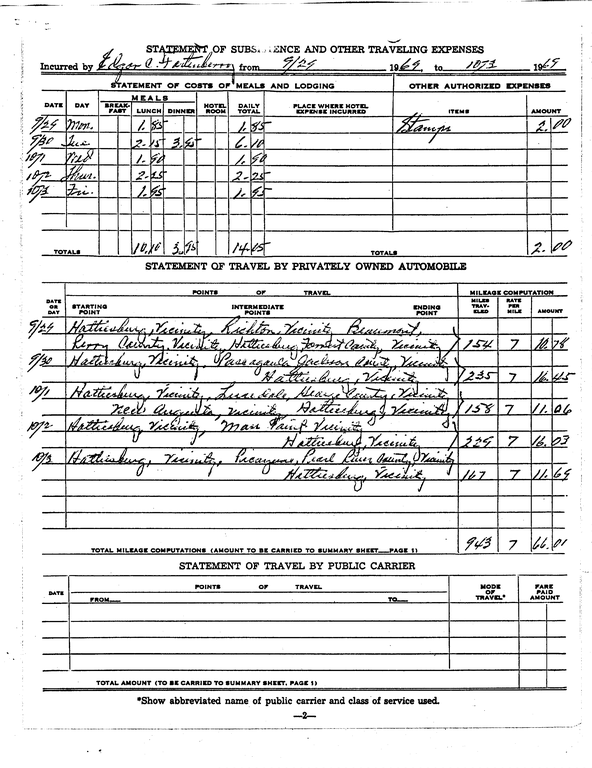 STATEMENT OF SUBSISTENCE AND OTHER TRAVELING EXPENSES
Incurred by Edgar C. Fortenberry from 9/29 1969, to 10/3 1969
STATEMENT OF COSTS OF MEALS AND LODGING OTHER AUTHORIZED EXPENSES
DATE DAY MEALS HOTEL ROOM DAILY TOTAL PLACE WHERE HOTEL EXPENSE INCURRED ITEMS AMOUNT
BREAK-FAST LUNCH DINNER
9/29 Mon. 1.85 1.85 Stamps 2.00
9/30 Tue 2.15 3.95 6.10
10/1 Wed 1.90 1.90
10/2 Thur. 2.25 2.25
10/3 Fri. 1.95 1.95
TOTALS 10.10 3.95 14.05 TOTALS 2.00
STATEMENT OF TRAVEL BY PRIVATELY OWNED AUTOMOBILE
POINTS OF TRAVEL MILEAGE COMPUTATION
DATE OR DAY STARTING POINT INTERMEDIATE POINTS ENDING POINT MILES TRAV-ELED RATE PER MILE AMOUNT
9/29 Hattiesburg, Vicinity, Richton, Vicinity Beaumont,
Perry County, Vicinity, Hattiesburg, Forrest County, Vicinity 154 7 10.78
9/30 Hattiesburg, Vicinity, Pascagoula, Jackson County, Vicinity
Hattiesburg, Vicinity 235 7 16.45
10/1 Hattiesburg, Vicinity, Lucedale, George County, Vicinity
New Augusta, Vicinity, Hattiesburg, Vicinity 158 7 11.06
10/2 Hattiesburg Vicinity, Moss Point Vicinity
Hattiesburg, Vicinity 229 7 16.03
10/3 Hattiesburg, Vicinity, Picayune, Pearl River County, Vicinity
Hattiesburg, Vicinity 167 7 11.69
TOTAL MILEAGE COMPUTATIONS (AMOUNT TO BE CARRIED TO SUMMARY SHEET—PAGE 1) 943 7 66.01
STATEMENT OF TRAVEL BY PUBLIC CARRIER
DATE POINTS OF TRAVEL MODE OF TRAVEL* FARE PAID AMOUNT
FROM— TO—
TOTAL AMOUNT (TO BE CARRIED TO SUMMARY SHEET, PAGE 1)
*Show abbreviated name of public carrier and class of service used.
—2—